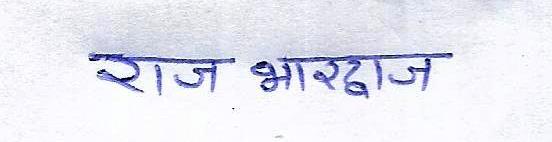 राज भारद्वाज